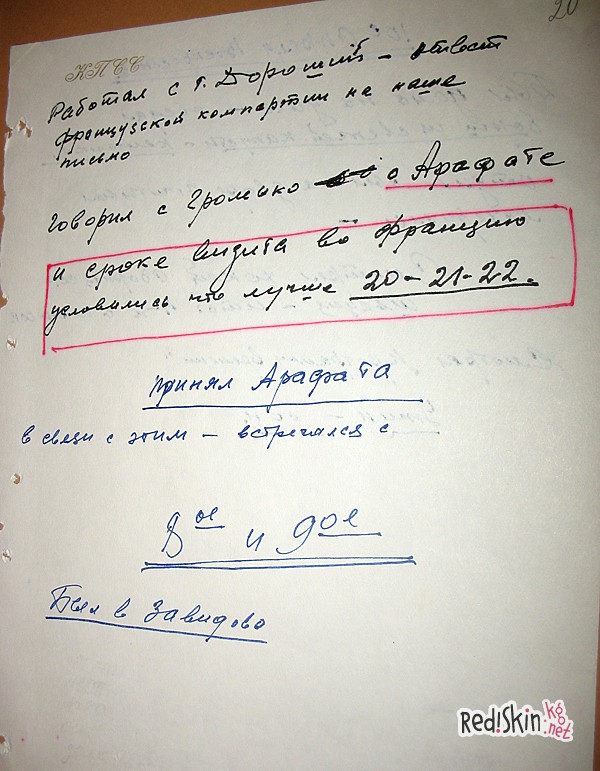 20
КПСС
Работал с т. Дорошит – ответ
французской компартии на наше
письмо
Говорил с Громыко о Арафате
и сроке визита во Францию
условились что лучше 20-21-22.
принял Арафата
в свези с этим – встречался с
8ое и 9ое
Был в Завидово
RediSkin.kg.net